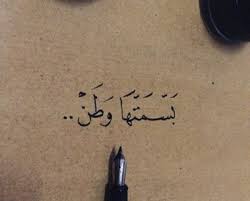 بَسّمَتُهَا وَطَنْ ..